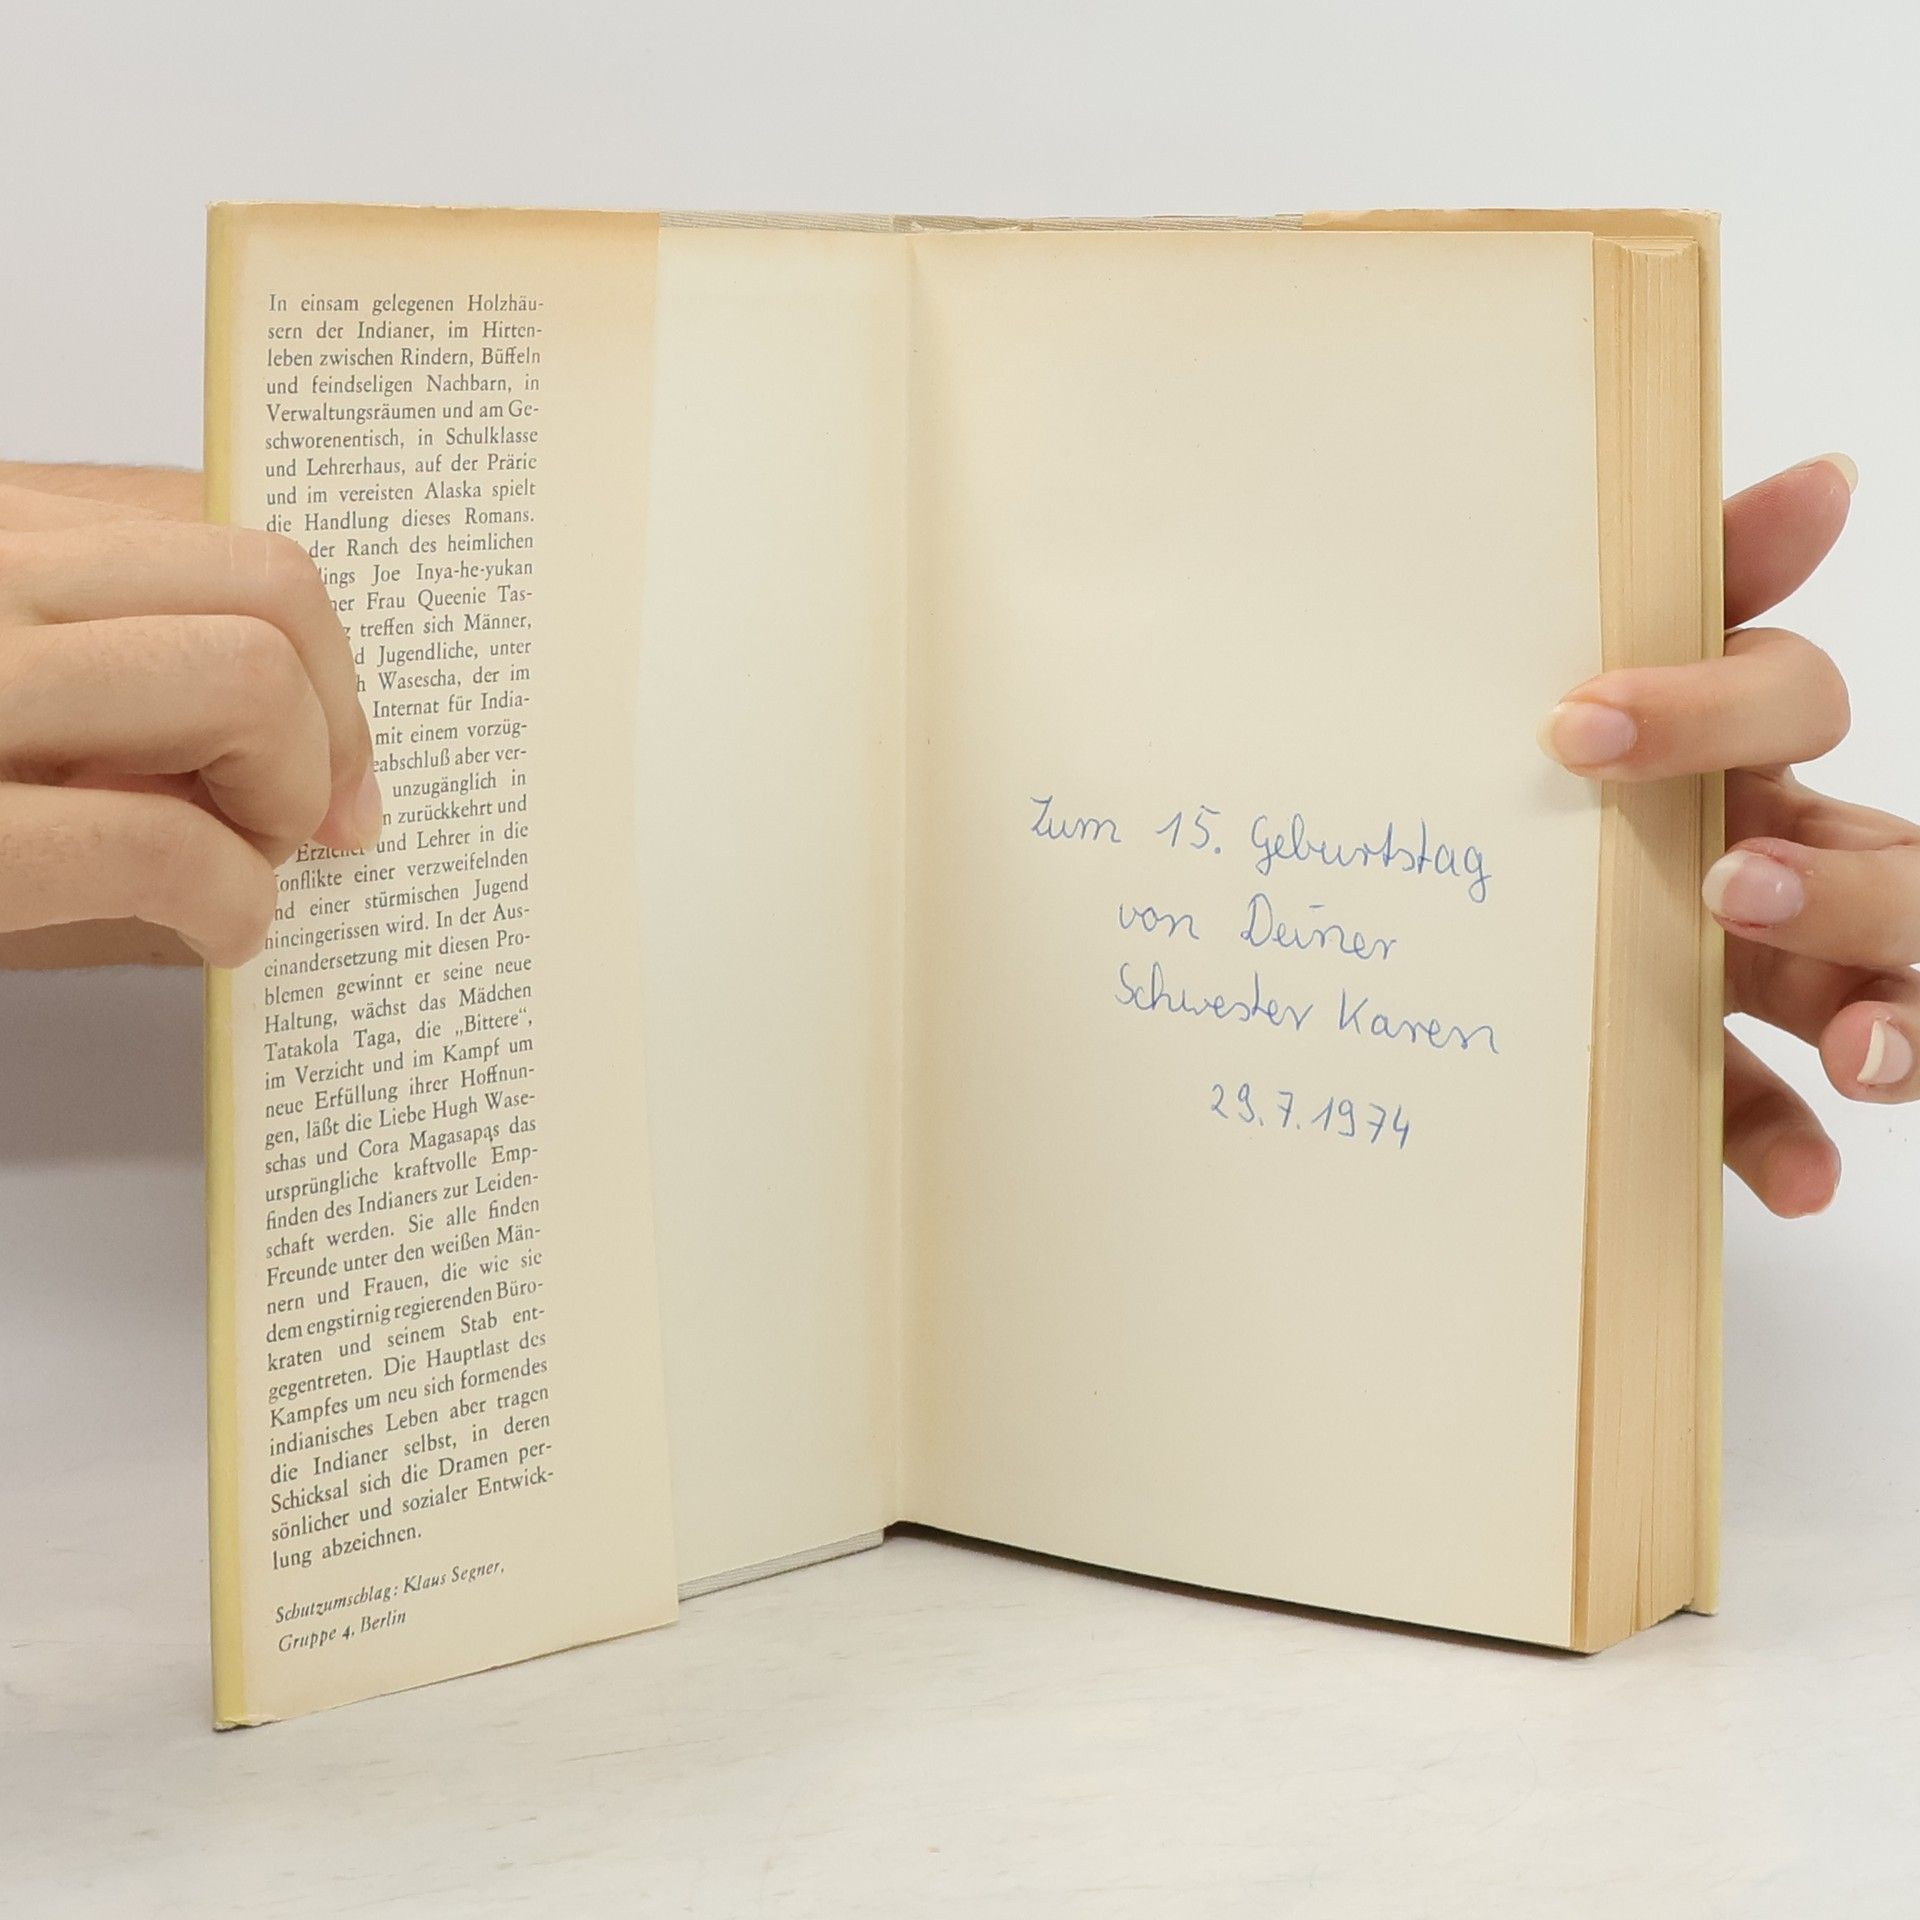 In einsam gelegenen Holzhäu-
sern der Indianer, im Hirten-
leben zwischen Rindern, Büffeln
und feindseligen Nachbarn, in
Verwaltungsräumen und am Ge-
schworenentisch, in Schulklasse
und Lehrerhaus, auf der Prärie
und im vereisten Alaska spielt
die Handlung dieses Romans.
der Ranch des heimlichen
lings Joe Inya-he-yukan
ner Frau Queenie Tas-
treffen sich Männer,
d Jugendliche, unter
h Wasescha, der im
Internat für India-
mit einem vorzüg-
eabschluß aber ver-
unzugänglich in
n zurückkehrt und
Erzieher und Lehrer in die
Konflikte einer verzweifelnden
und einer stürmischen Jugend
hineingerissen wird. In der Aus-
einandersetzung mit diesen Pro-
blemen gewinnt er seine neue
Haltung, wächst das Mädchen
Tatakola Taga, die „Bittere“,
im Verzicht und im Kampf um
neue Erfüllung ihrer Hoffnun-
gen, läßt die Liebe Hugh Wase-
schas und Cora Magasapas das
ursprüngliche kraftvolle Emp-
finden des Indianers zur Leiden-
schaft werden. Sie alle finden
Freunde unter den weißen Män-
nern und Frauen, die wie sie
dem engstirnig regierenden Büro-
kraten und seinem Stab ent-
gegentreten. Die Hauptlast des
Kampfes um neu sich formendes
indianisches Leben aber tragen
die Indianer selbst, in deren
Schicksal sich die Dramen per-
sönlicher und sozialer Entwick-
lung abzeichnen.
Schutzumschlag: Klaus Segner,
Gruppe 4, Berlin
Zum 15. Geburtstag
von Deiner
Schwester Karen
29.7.1974